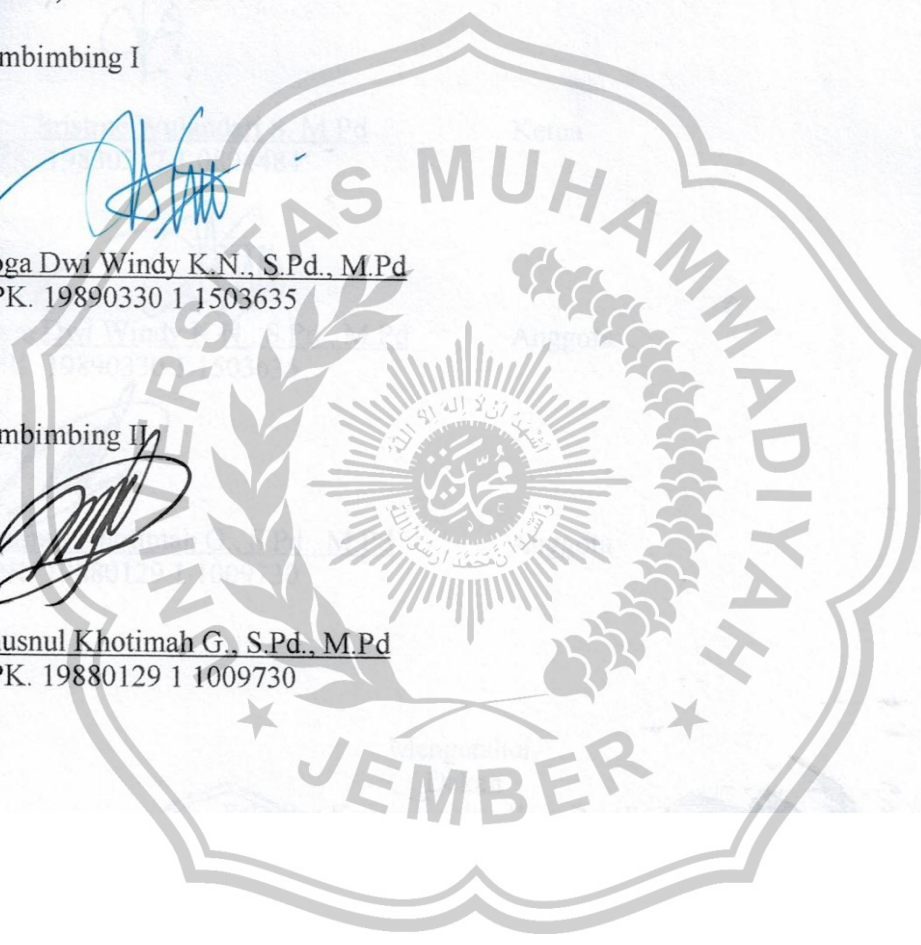 mbimbing I
Ketua
oga Dwi Windy K.N., S.Pd., M.Pd
PK. 19890330 1 1503635
mbimbing II
usnul Khotimah G., S.Pd., M.Pd
PK. 19880129 1 1009730
Mengetahui
UNIVERSITAS MUHAMMADIYAH
JEMBER